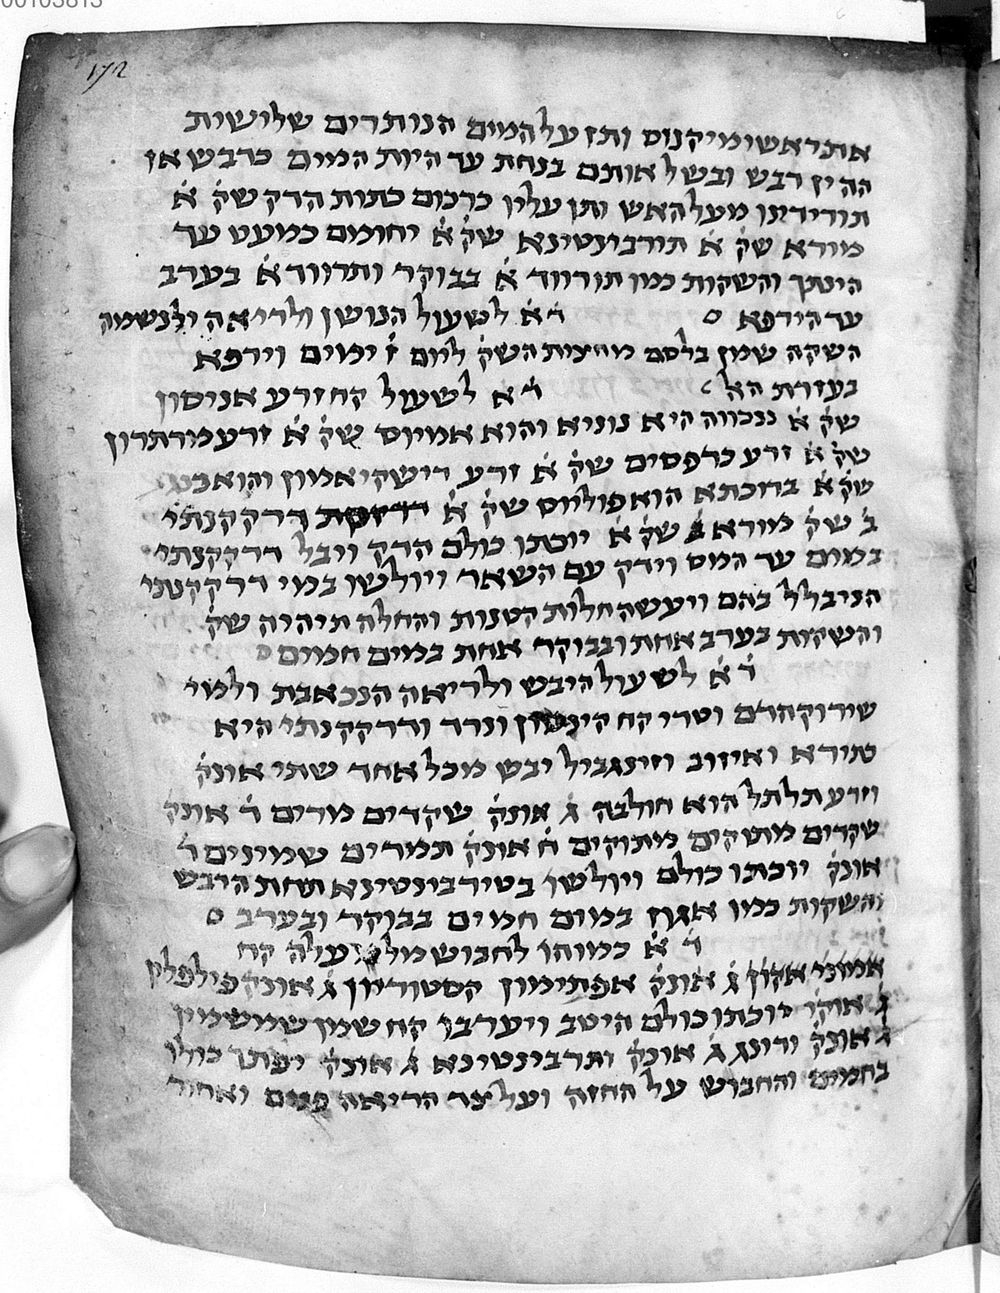 00103813
172
את ראשו מיקנוס ותן על המים הנותרים שלישית
ההין דבש ובשל אותם בנחת עד היות המים כדבש אז
תורידינו מעל האש ותן עליו כרכום כתות הדק שק׳ א׳
מורא שק׳ א׳ תורבינטינא שק׳ א׳ יחומם כמעט עד
הינתך והשקות כמו תורווד א׳ בבוקר ותרווד א׳ בערב
עד הירפא ס ד׳ א׳ לשעול הנושן ולריאה ולנשמה
השקה שמן בלסם מחצית השק׳ ליום ז׳ ימים וירפא
בעזרת הא׳ל ד׳ א׳ לשעול קח זרע אניסון
שק׳ א׳ ננכווה היא נוניא והוא אמיוס שק׳ א׳ זרע מרתרון
שק׳ א׳ זרע כרפסים שק׳ א׳ זרע דישקיאמון והוא
שק׳ א׳ ברוכתא הוא פוליוס שק׳ א׳ דרקקנתי
ב׳ שק׳ מורא שק׳ א׳ יוכתו כולם הדק ויבל דרקקנתי
במים עד המס וידק עם השאר ויולשו במי דרקקנתי
הניבלל בהם ויעשה חלות קטנות והחלה תיהיה שק׳
והשקות בערב אחת ובבוקר אחת במים חמים ס
ד׳ א׳ לשעול היבש ולריאה הנכאבת ולמי
שירוק חדם וטרי קח ונרד ודרקקנתי היא
טנידא ואיזוב וזינגביל יבש מכל אחד שתי אונק׳
וזרע תלתל הוא חולבה ג׳ אונק׳ שקדים מרים ד׳ אונק׳
שקדים מתוקים מתוקים ח׳ אונק׳ תמרים שמינים ד׳
אונק׳ יוכתו כולם ויולשו בטירבינטינא תחת הדבש
והשקות כמו אגוז במים חמים בבוקר ובערב ס
ד׳ א׳ כמוהו לחבוש מל קח
ג׳ אונק׳ אפתימון קסטוריון ג׳ אונק׳ פילפלין
ג׳ אונק׳ יוכתו כולם היטב ויערבו קח שמן שמשמין
ג׳ אונק׳ ודונג ג׳ אונק׳ ותרבינטינא ג׳ אונק׳ יפתר כולו
בחמים והחבוש על החזה ועל צד הריאה פנים ואחור